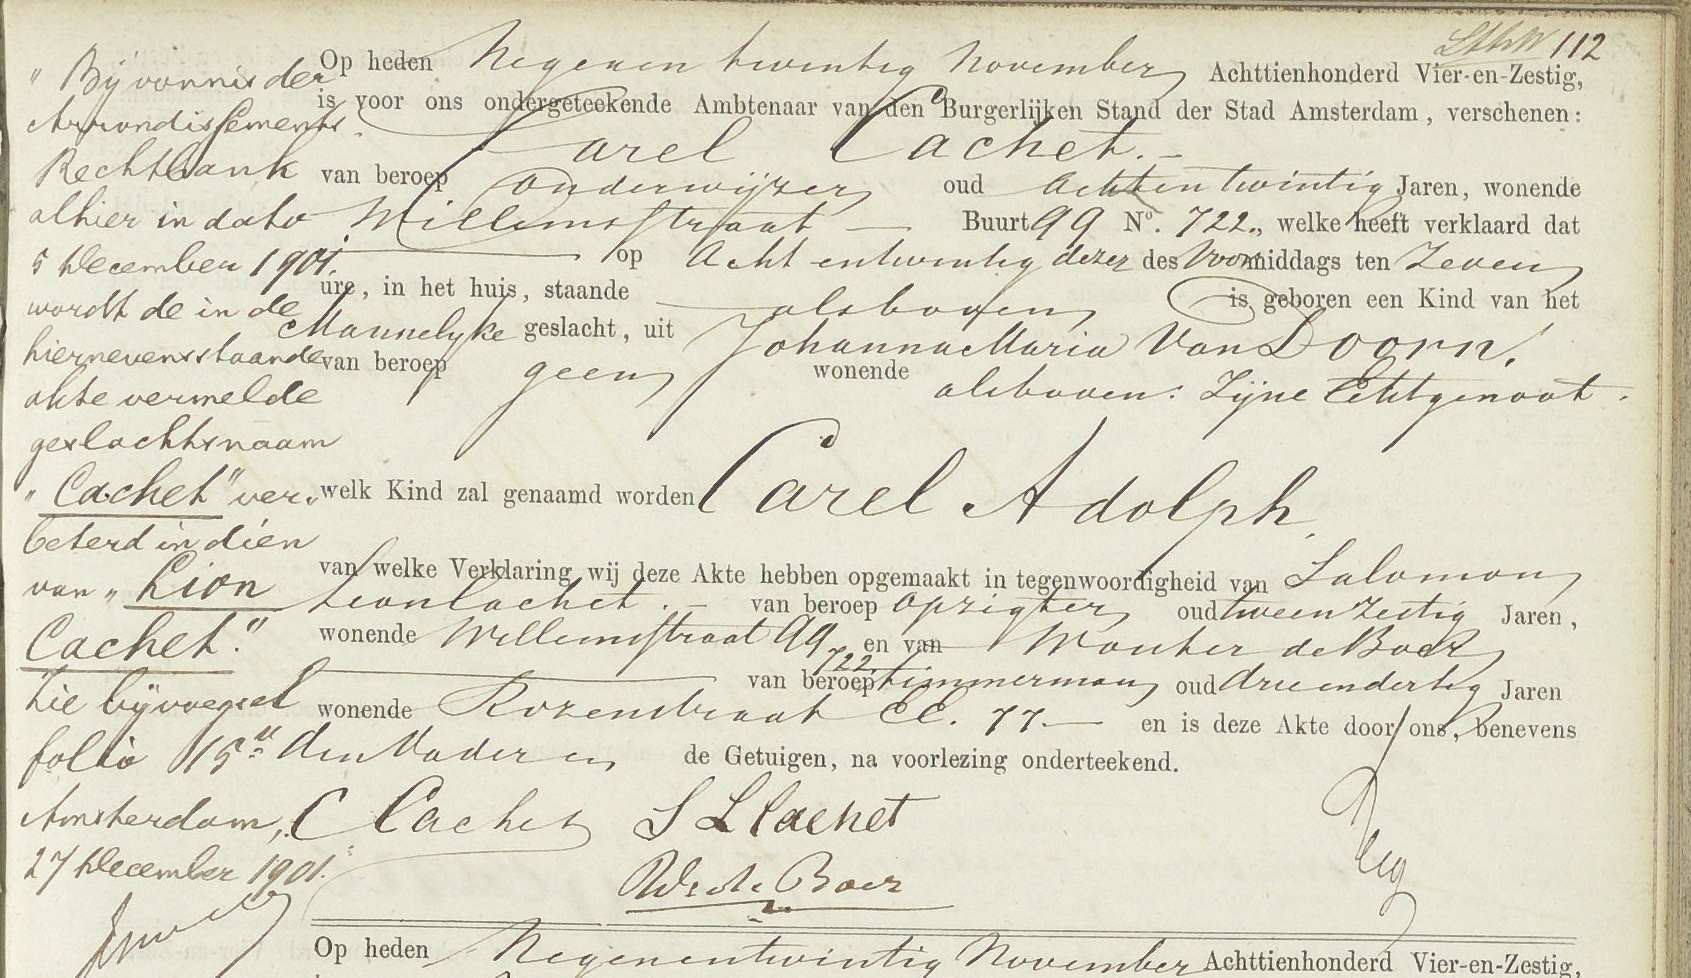 112
Op heden Negenen twintig November Achttienhonderd Vier-en-Zestig,
is voor ons ondergeteekende Ambtenaar van den Burgerlijken Stand der Stad Amsterdam, verschenen:
Carel Cachet.
van beroep onderwijzer oud achtentwintig Jaren, wonende
Willemsstraat Buurt 99 No. 722., welke heeft verklaard dat
op Acht entwintig dezer des Voormiddags ten Zeven
ure, in het huis, staande alsboven is geboren een Kind van het
Mannelyke geslacht, uit Johanna Maria Van Doorn.
van beroep geen wonende alsboven: Zijne Echtgenoot.
welk Kind zal genaamd worden Carel Adolph.
van welke Verklaring wij deze Akte hebben opgemaakt in tegenwoordigheid van Salomon
Leon Cachet. van beroep opzigter oud tweenzestig Jaren,
wonende Willemsstraat 99 722 en van Wouter de Boer
van beroep timmerman oud drieendertig Jaren
wonende Rozenstraat CC. 77 en is deze Akte door ons, benevens
den Vader en de Getuigen, na voorlezing onderteekend.
C Cachet S L Cachet
W de Boer
"Bij vonnis der
Arrondissements
Rechtbank
alhier in dato
5 December 1901.
wordt de in de
hiernevensstaande
akte vermelde
geslachtsnaam
"Cachet" ver-
beterd in dien
van "Lion
Cachet."
Zie bijvoegsel
folio 15.
Amsterdam,
27 December 1901.
Op heden Negenentwintig November Achttienhonderd Vier-en-Zestig,